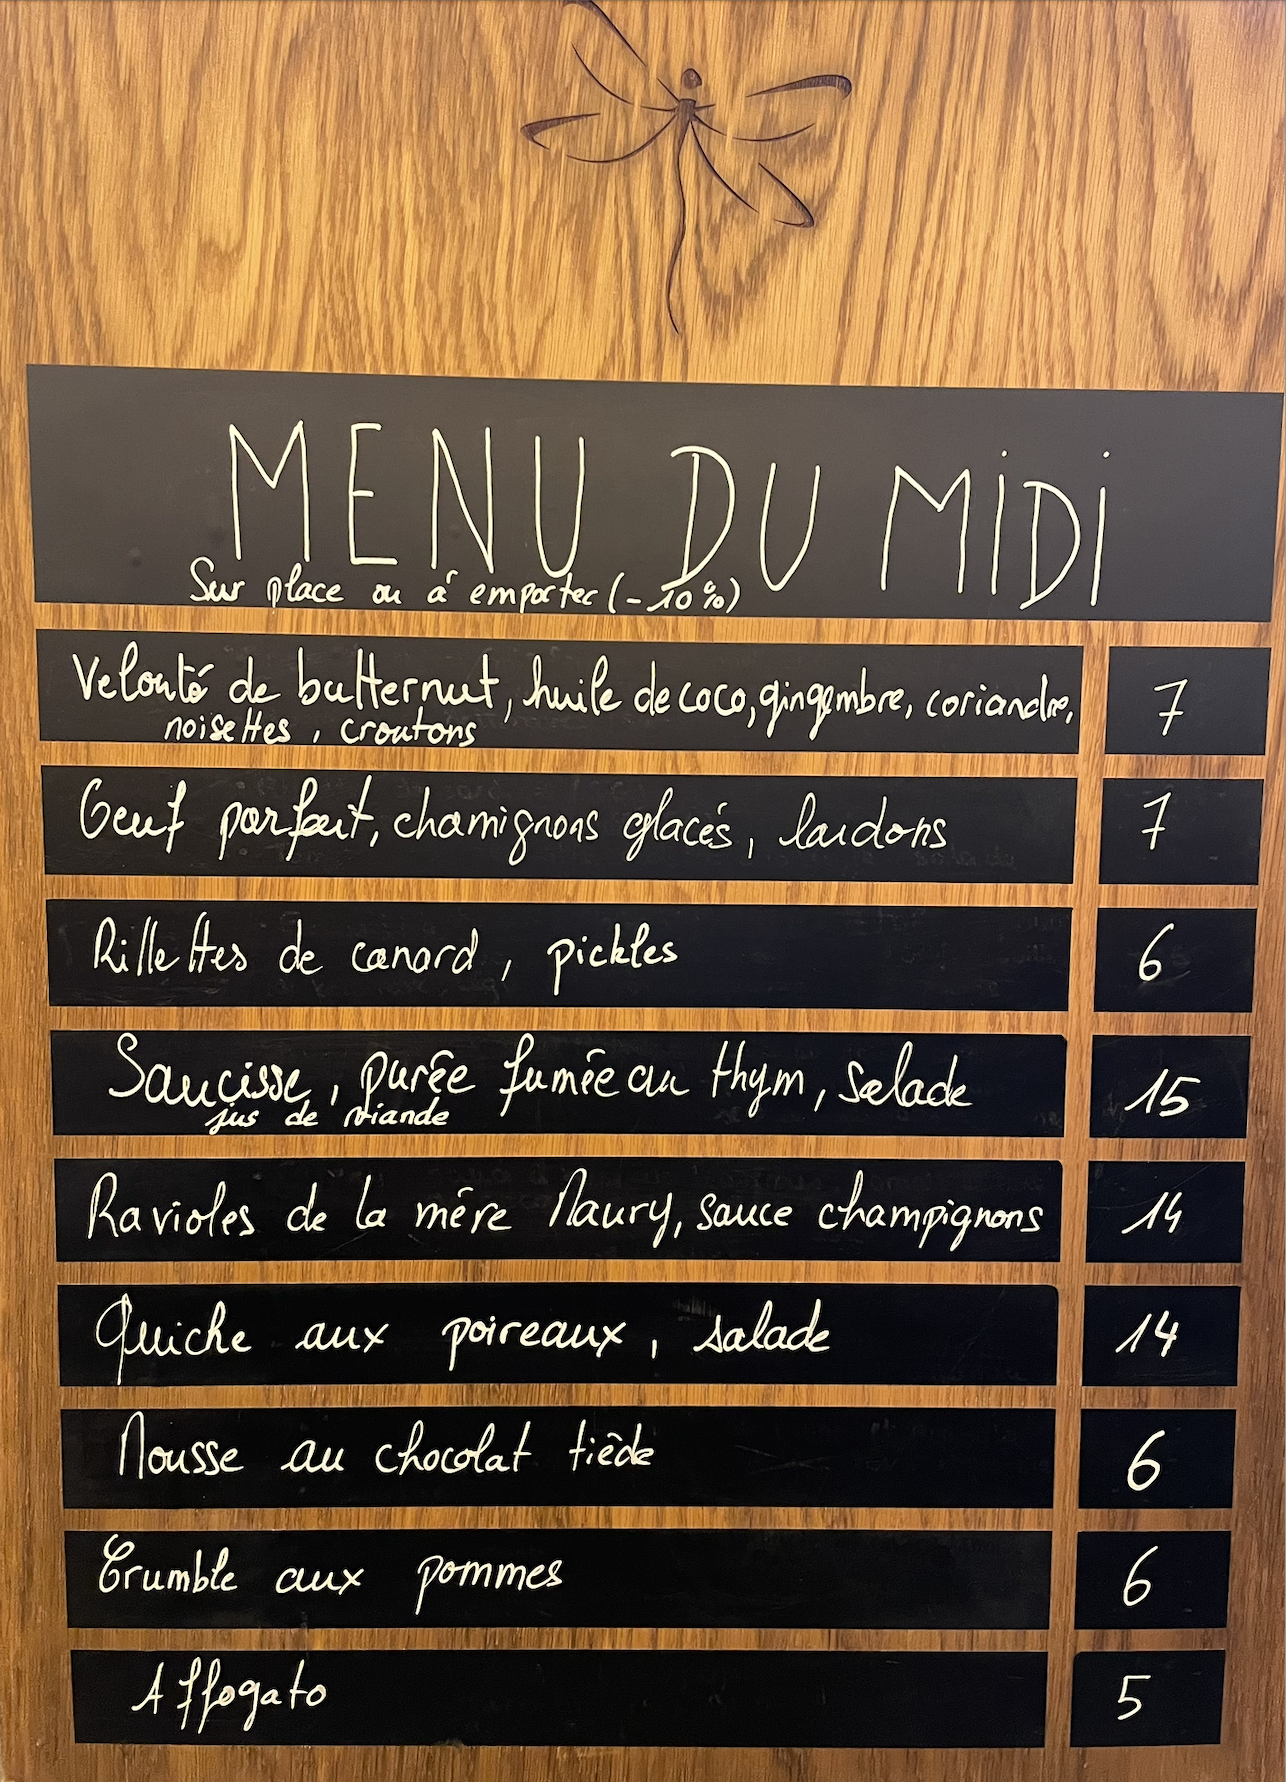 MENU DU MiDi
Sur place ou à emporter (-10%)
Velouté de butternut, huile de coco, gingembre, coriandre, 7
noisettes, croutons
Oeuf parfait, chamignons glacés, lardons 7
Rillettes de canard, pickles 6
Saucisse, purée fumée au thym, salade 15
jus de viande
Ravioles de la mére Maury, sauce champignons 14
Quiche aux poireaux, salade 14
Mousse au chocolat tiède 6
Crumble aux pommes 6
Affogato 5